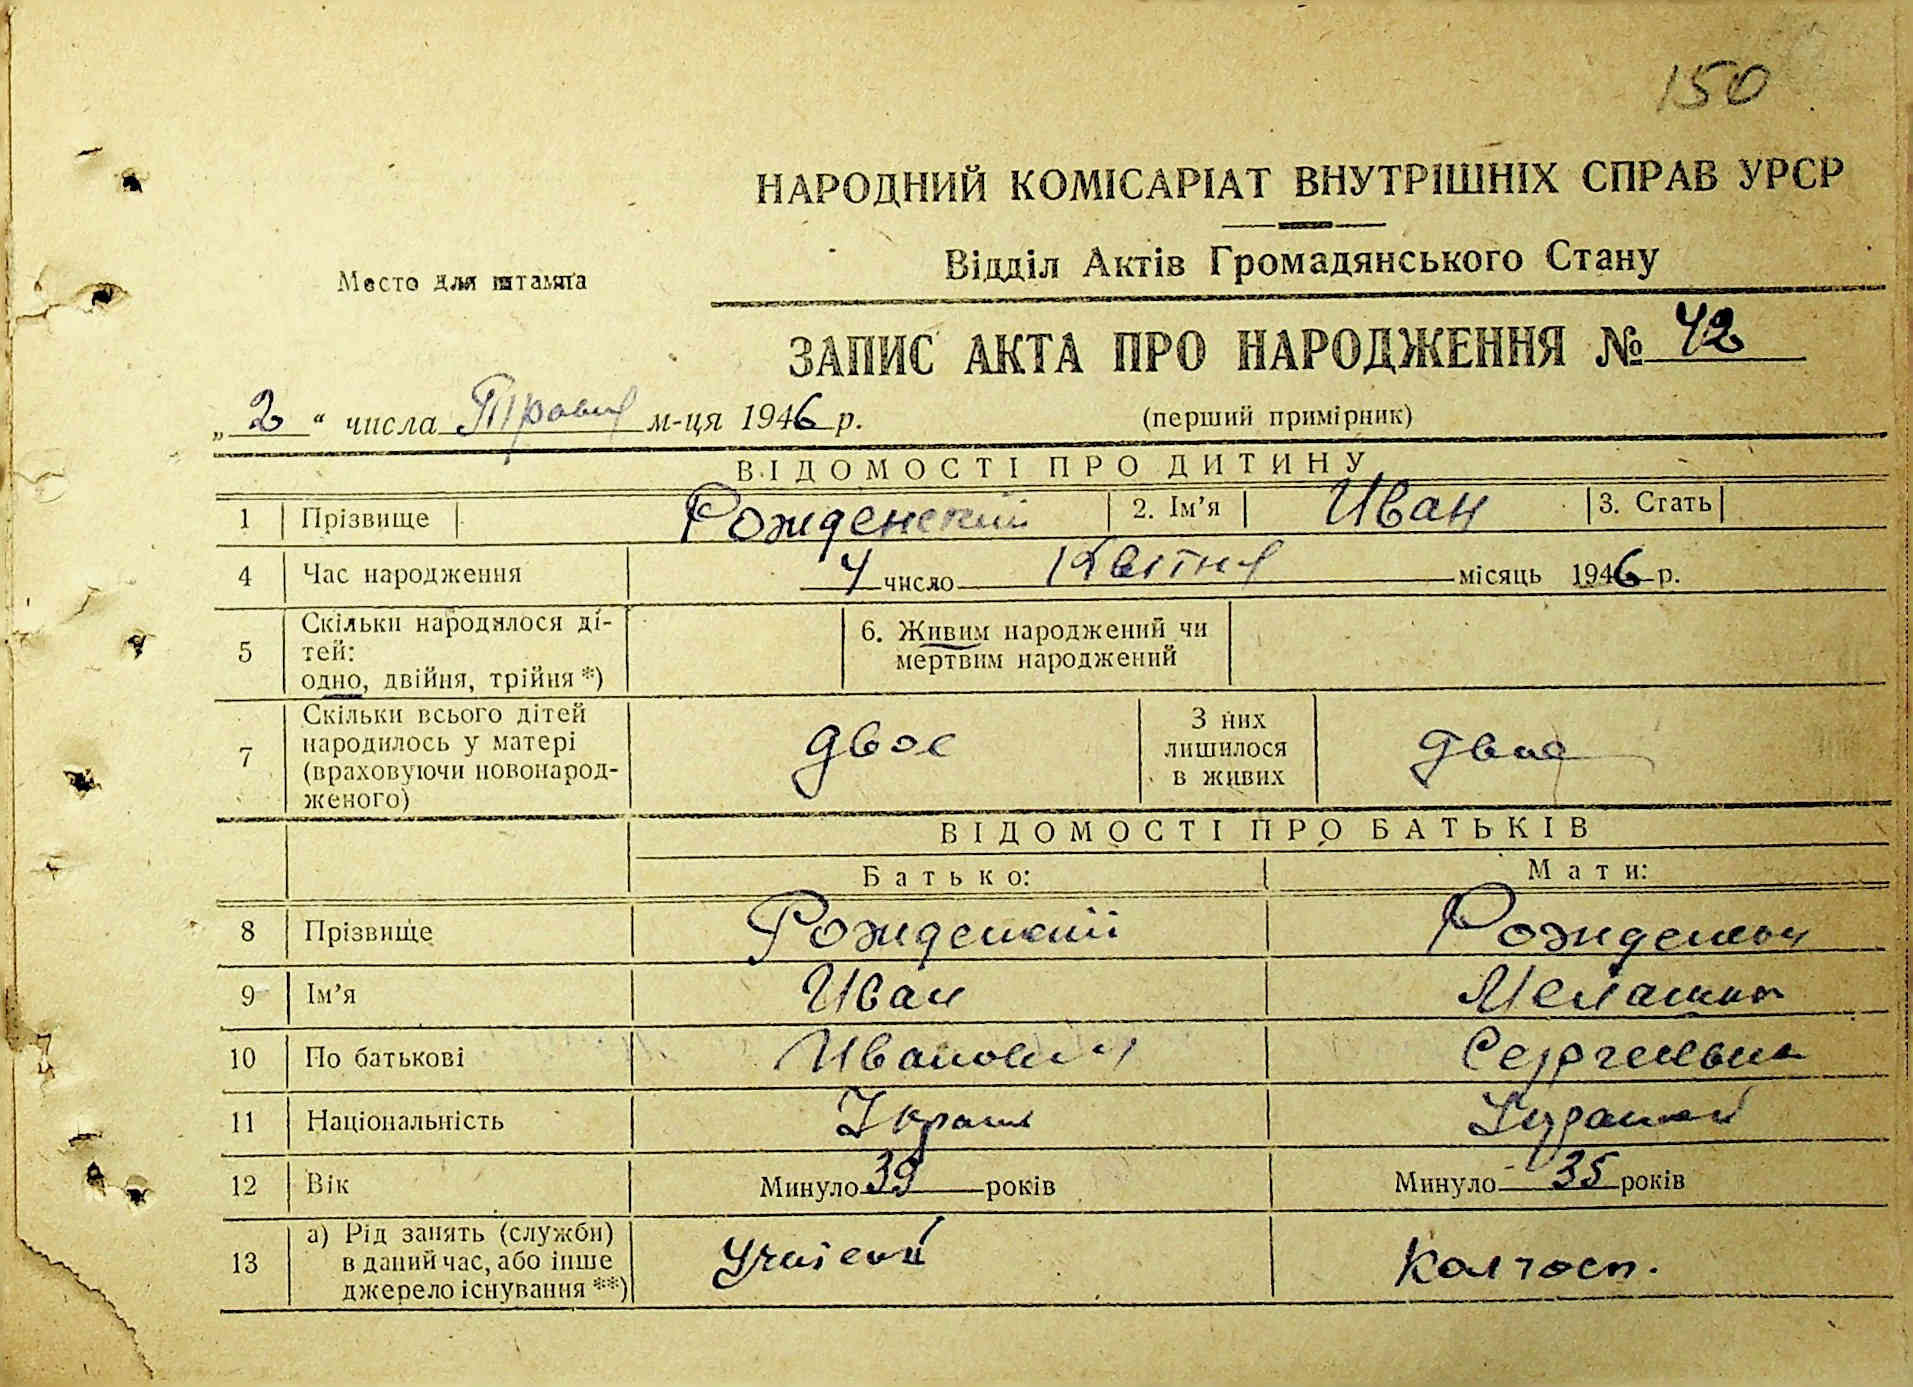 150
НАРОДНИЙ КОМІСАРІАТ ВНУТРІШНІХ СПРАВ УРСР
Відділ Актів Громадянського Стану
Место для штампа
ЗАПИС АКТА ПРО НАРОДЖЕННЯ № 42
„2“ числа Травня м-ця 1946 р. (перший примірник)
ВІДОМОСТІ ПРО ДИТИНУ
1 Прізвище Рожденский 2. Ім’я Иван 3. Стать
4 Час народження 4 число Квітня місяць 1946 р.
5 Скільки народилося ді-
тей:
одно, двійня, трійня *)
6. Живим народжений чи
мертвим народжений
7 Скільки всього дітей
народилось у матері
(враховуючи новонарод-
женого)
двое
З них
лишилося
в живих
двое
ВІДОМОСТІ ПРО БАТЬКІВ
Батько: Мати:
8 Прізвище Рожденский
9 Ім’я Иван Мелашка
10 По батькові Иванович Сергеевна
11 Національність
12 Вік Минуло 39 років Минуло 35 років
13 а) Рід занять (служби)
в даний час, або інше
джерело існування **)
Колгосп.